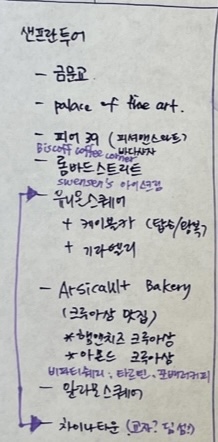 샌프란투어
- 금문교
- palace of fine art.
- 피어 39 (피셔맨스와트)
바다사자
Biscoff coffee corner
- 롬바드스트리트
swensen's 아이스크림
- 유니온스퀘어
+ 케이블카 (탑승/왕복)
+ 기라델리
- Arsicault Bakery
(크루아상 맛집)
* 햄앤치즈 크루아상
* 아몬드 크루아상
비파티세리, 타르틴, 포배럴커피
- 알라모스퀘어
- 차이나타운 (교자? 딤섬?)